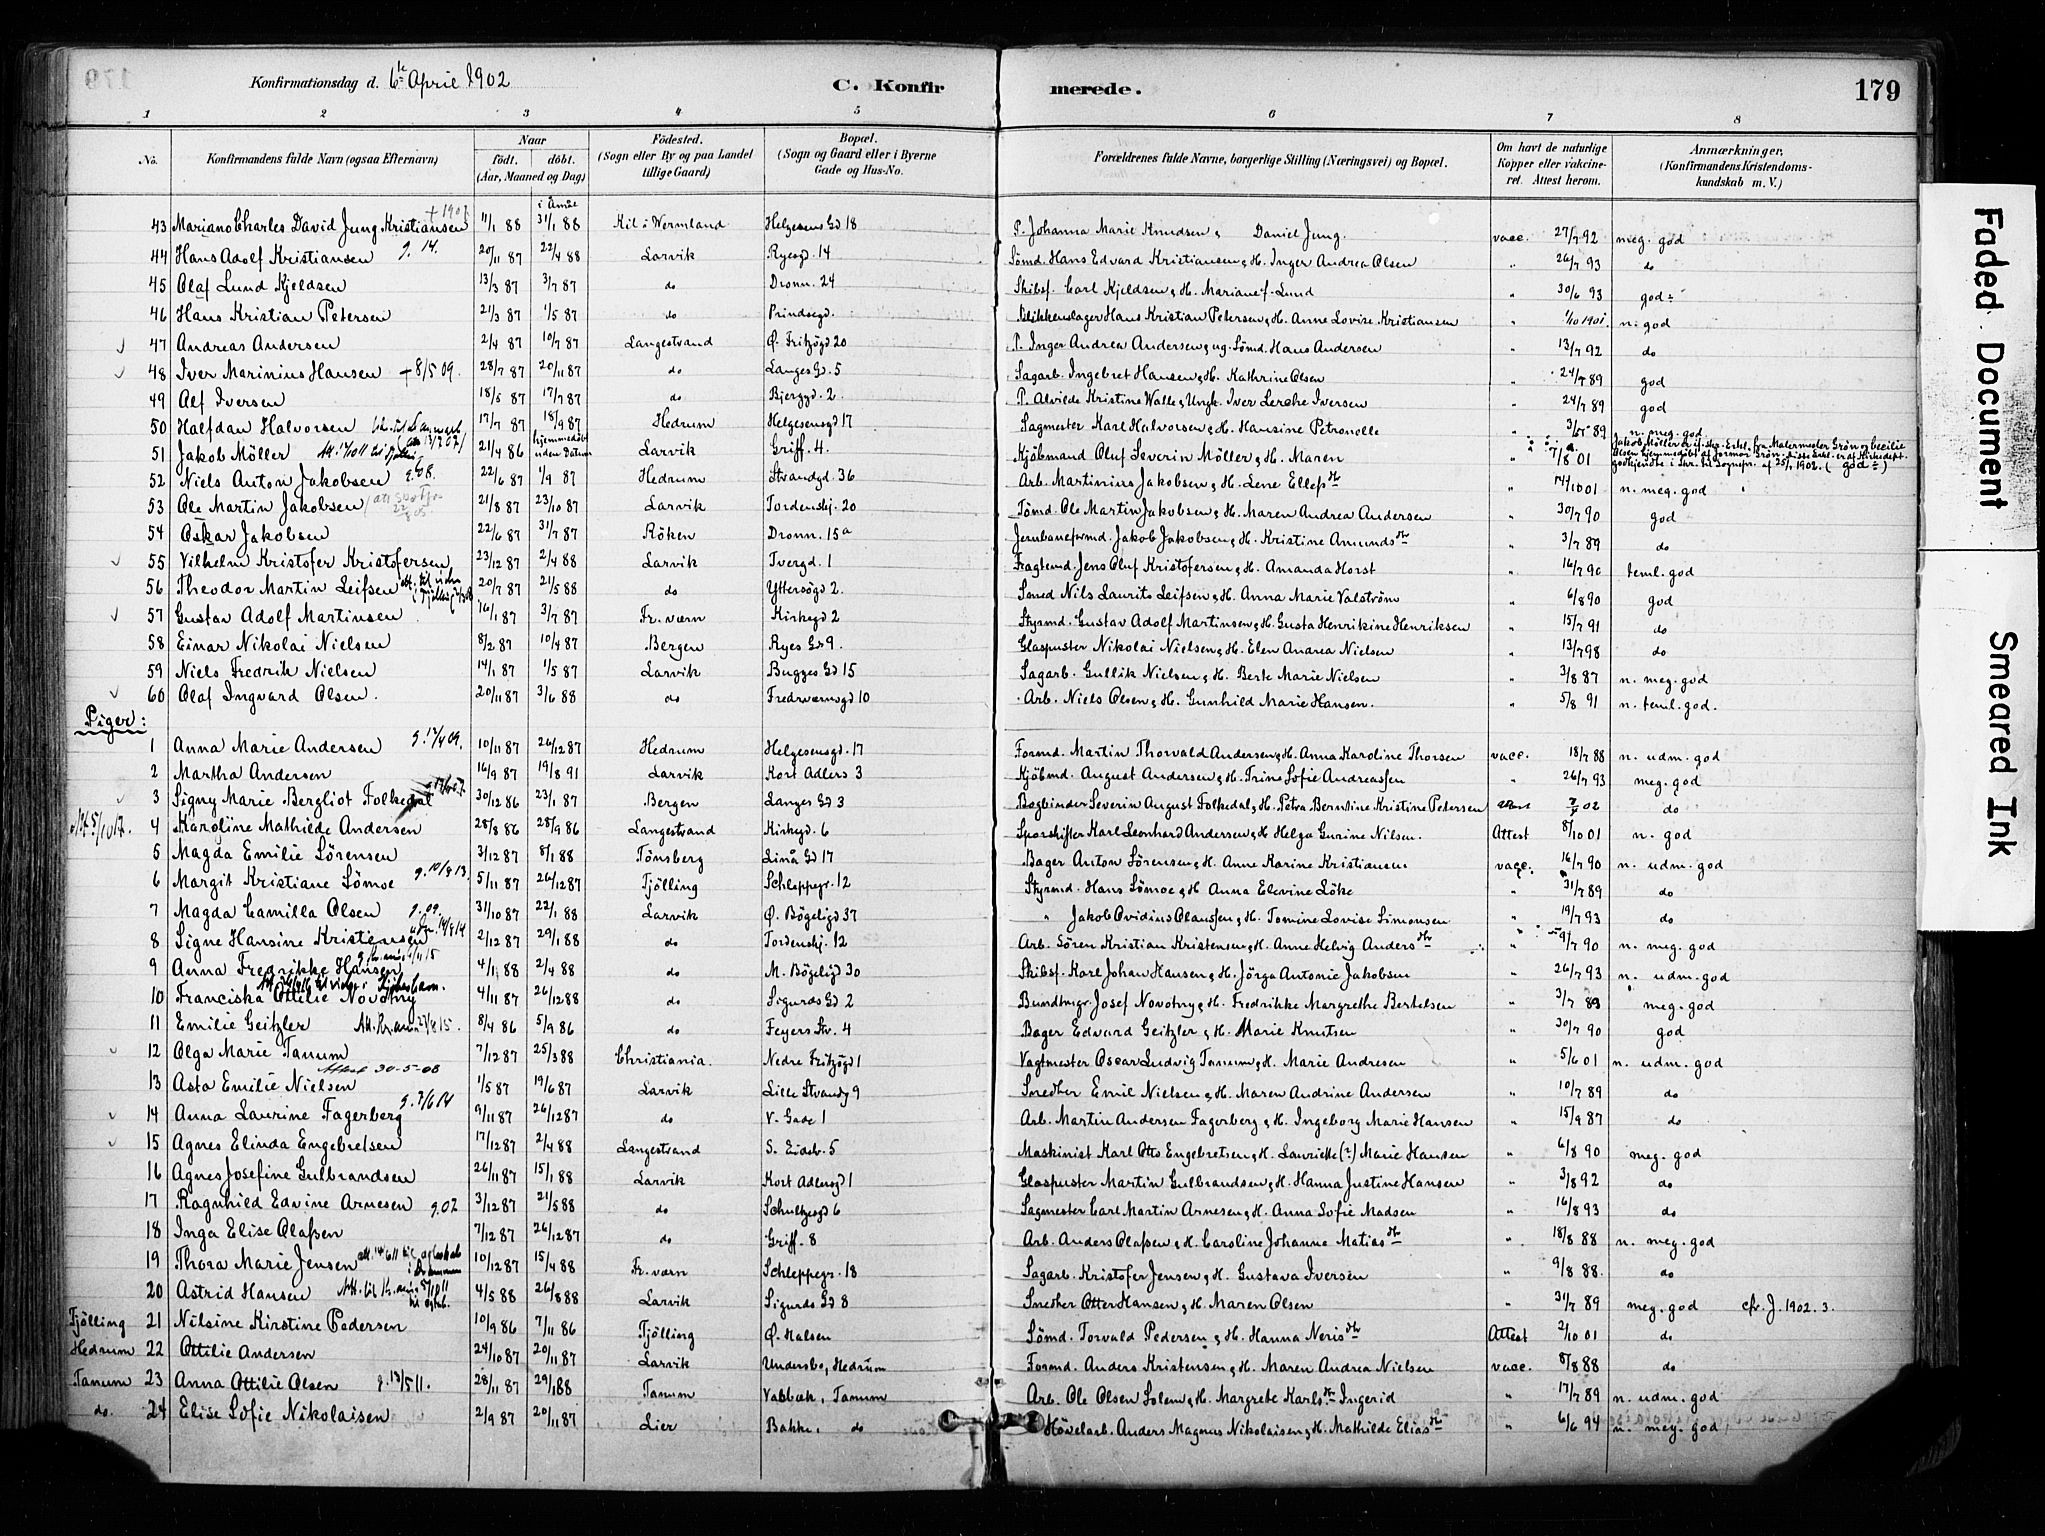 Konfirmationsdag d. 6te April 1902 C. Konfirmerede. 179
1 2 3 4 5 6 7 8
No. Konfirmandens fulde Navn (ogsaa Efternavn) Naar født. døbt. (Aar, Maaned og Dag) Fødested. (Sogn eller By og paa Landet tillige Gaard) Bopæl. (Sogn og Gaard eller i Byerne Gade og Hus-No. Forældrenes fulde Navne, borgerlige Stilling (Næringsvei) og Bopæl. Om havt de naturlige Kopper eller vakcineret. Attest herom. Anmærkninger, (Konfirmandens Kristendomskundskab m. V.)
43 Mariano Charles David Jung Kristiansen 11/1 88 31/1 88 Kil i Wermland Helgesens Gd 18 P. Johanna Marie Knudsen & Daniel Jung. vacc. 27/7 92 meg. god
44 Hans Adolf Kristiansen g. 14. 20/11 87 22/4 88 Larvik Ryesgd. 14 Sömd. Hans Edvard Kristiansen & H. Inger Andrea Olsen " 26/7 93 do
45 Olaf Lund Kjeldsen 13/3 87 3/7 87 do Dronn. 24 Skibsf. Carl Kjeldsen & H. Mariane f. Lund " 30/6 93 god ÷
46 Hans Kristian Petersen 21/3 87 1/5 87 do Prindsegd. Blikkenslager Hans Kristian Petersen & H. Anne Lovise Kristiansen " 1/10 1901. n. god
47 Andreas Andersen 2/4 87 10/7 87 Langestrand Ø. Fritzögd 20 P. Inger Andrea Andersen & ug. Sömd. Hans Andersen " 13/7 92 do
48 Iver Marinius Hansen + 8/5 09. 28/7 87 20/11 87 do Langes Gd. 5 Sagarb. Ingebret Hansen & H. Kathrine Olsen " 24/7 89 god
49 Alf Iversen 18/5 87 17/7 87 do Bjerggd. 2. P. Alvilde Kristine Walle & Ungk. Iver Lerche Iversen " 24/7 89 god
50 Halfdan Halvorsen 17/7 87 18/9 87 Hedrum Helgesensgd 17 Sagmester Karl Halvorsen & H. Hansine Petronelle " 89 n. meg. god
51 Jakob Möller 21/4 86 hjemmedöbt uden Datum Larvik Griff. 4. Kjöbmand Oluf Severin Möller & H. Maren 7/8 01
52 Niels Anton Jakobsen g. 08. 22/6 87 1/9 87 Hedrum Strandgd. 36 Arb. Martinius Jakobsen & H. Lene Ellefsdtr " 14/10 01 n. meg. god
53 Ole Martin Jakobsen 21/8 87 23/10 87 Larvik Tordenskj. 20 Tömd. Ole Martin Jakobsen & H. Maren Andrea Andersen " 30/7 90 god
54 Oskar Jakobsen 22/6 87 31/7 87 Röken Dronn. 15a Jernbaneformd. Jakob Jakobsen & H. Kristine Amundsdtr " 3/7 89 do
55 Vilhelm Kristofer Kristofersen 23/12 87 2/4 88 Larvik Tvergd. 1 Fragtemd. Jens Oluf Kristofersen & H. Amanda Horst " 16/7 90 teml. god
56 Theodor Martin Leifsen 20/7 87 21/5 88 do Yttersögd 2. Smed Nils Laurits Leifsen & H. Anna Marie Valström " 6/8 90 god
57 Gustav Adolf Martinsen 16/1 87 3/7 87 Fr. værn Kirkegd 2 Styrmd. Gustav Adolf Martinsen & H. Gusta Henrikine Henriksen " 15/7 91 do
58 Einar Nikolai Nielsen 8/2 87 10/4 87 Bergen Ryes Gd 9. Glaspuster Nikolai Nielsen & H. Elen Andrea Nielsen " 13/7 98 do
59 Niels Fredrik Nielsen 14/1 87 1/5 87 Larvik Bugges Gd 15 Sagarb. Gullik Nielsen & H. Berte Marie Nielsen " 3/8 87 n. meg. god
60 Olaf Ingvard Olsen. 20/11 87 3/6 88 do Fredrværnsgd 10 Arb. Niels Olsen & H. Gunhild Marie Hansen. " 5/8 91 n. teml. god.
Piger:
1 Anna Marie Andersen g. 12/4 09. 10/11 87 26/12 87 Hedrum Helgesensgd. 17 Formd. Martin Thorvald Andersen & H. Anna Karoline Thorsen vacc. 18/7 88 n. udm. god
2 Martha Andersen 16/9 87 19/8 91 Larvik Kort Adlers 3 Kjöbmd. August Andersen & H. Trine Sofie Andreassen " 26/7 93 meg. god
3 Signy Marie Bergliot Folkedal 30/12 86 23/1 87 Bergen Langes Gd 3 Bogbinder Severin August Folkedal & H. Petra Berntine Kristine Petersen 02 do
4 Karoline Mathilde Andersen 28/8 86 28/9 86 Langestrand Kirkegd. 6 Sporskifter Karl Leonhard Andersen & H. Helga Gurine Nilsen. Attest 8/10 01 n. god
5 Magda Emilie Sörensen 3/12 87 8/1 88 Tönsberg Linå Gd 17 Bager Anton Sörensen & H. Anne Karine Kristiansen vacc. 16/7 90 n. udm. god
6 Margit Kristiane Sömoe 5/11 87 26/12 87 Tjölling Schleppegr. 12 Styrmd. Hans Sömoe & H. Anna Elevine Löke " 31/7 89 do
7 Magda Camilla Olsen g. 09. 31/10 87 22/1 88 Larvik Ø. Bögeligd 37 " Jakob Ovidius Olaussen & H. Tomine Lovise Simonsen " 19/7 93 do
8 Signe Hansine Kristensen 2/12 87 29/1 88 do Tordenskj. 12 Arb. Sören Kristian Kristensen & H. Anne Helvig Andersdtr " 9/7 90 n. meg. god
9 Anna Fredrikke Hansen 4/11 88 2/4 88 do M. Bögeligd 30 Skibsf. Karl Johan Hansen & H. Jörga Antonie Jakobsen " 26/7 93 n. udm. god
10 Franciska Ottilie Novotny 4/11 87 26/12 88 do Sigurds Gd 2 Bundtmgr. Josef Novotny & H. Fredrikke Margrethe Bertelsen " 3/7 89 meg. god
11 Emilie Geitzler 8/4 86 5/9 86 do Feyers Str. 4 Bager Edvard Geitzler & H. Marie Knutsen " 30/7 90 god
12 Olga Marie Tanum 7/12 87 25/3 88 Christiania. Nedre Fritzögd 1 Vagtmester Oscar Ludvig Tanum & H. Marie Andresen " 5/6 01 n. udm. god
Attest 30-5-08
13 Asta Emilie Nielsen 1/5 87 19/6 87 Larvik Lille Strandg 9 Snedker Emil Nielsen & H. Maren Andrine Andersen " 10/7 89 do
14 Anna Laurine Fagerberg 9/11 87 26/12 87 do V. Gade 1 Arb. Martin Andersen Fagerberg & H. Ingeborg Marie Hansen " 15/9 87 do
15 Agnes Elinda Engebretsen 17/12 87 2/4 88 Langestrand S. Eidstr. 5 Maskinist Karl Otto Engebretsen & H. Lauriette (?) Marie Hansen " 6/8 90 meg. god
16 Agnes Josefine Gulbrandsen 26/11 87 15/1 88 Larvik Kort Adlersgd 1 Glaspuster Martin Gulbrandsen & H. Hanna Justine Hansen " 3/8 92 do
17 Ragnhild Edvine Arnesen g. 07 3/12 87 21/5 88 do Schultzesgd 6 Sagmester Carl Martin Arnesen & H. Anna Sofie Madsen " 16/8 93 do
18 Inga Elise Olafsen 7/12 87 26/12 87 do Griff. 8 Arb. Anders Olafsen & H. Caroline Johanne Matiasdtr " 18/8 88 n. meg. god
19 Thora Marie Jensen 10/12 87 15/4 88 Fr. værn Schleppegr. 18 Sagarb. Kristofer Jensen & H. Gustava Iversen " 9/8 88. do
20 Astrid Hansen 4/5 88 26/8 88 Larvik Sigurds Gd 8 Snedker Otter Hansen & H. Maren Olsen " 31/7 89 meg. god cfr. J. 1902. 3.
Tjölling 21 Nilsine Kirstine Pedersen 10/9 86 7/11 86 Tjölling Ø. Halsen Sömd. Torvald Pedersen & H. Hanna Nerisdtr Attest 2/10 01 do
Hedrum 22 Ottilie Andersen 24/10 87 20/11 87 Larvik Undersbo, Hedrum Formd. Anders Kristensen & H. Maren Andrea Nielsen vacc. 8/8 88 do
Tanum 23 Anna Ottilie Olsen g. 13/5 11. 28/11 87 29/1 88 Tanum Vabbæk, Tanum Arb. Ole Olsen Solem & H. Margrete Karlsdtr Ingerid " 17/7 89 n. udm. god
do. 24 Elise Sofie Nikolaisen 2/9 87 20/11 87 Lier Bakke, do Hövelarb. Anders Magnus Nikolaisen & H. Mathilde Eliasdtr " 6/6 94 n. meg. god
Faded Document
Smeared Ink